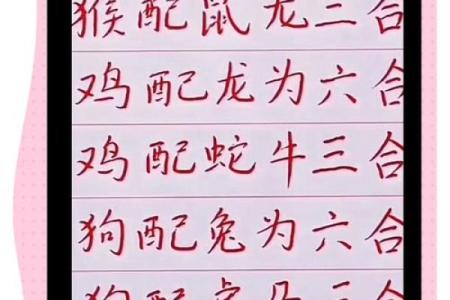 猴配鼠龙三合
鸡配龙为六合
鸡配蛇牛三合
狗配兔为六合
狗配虎马三合